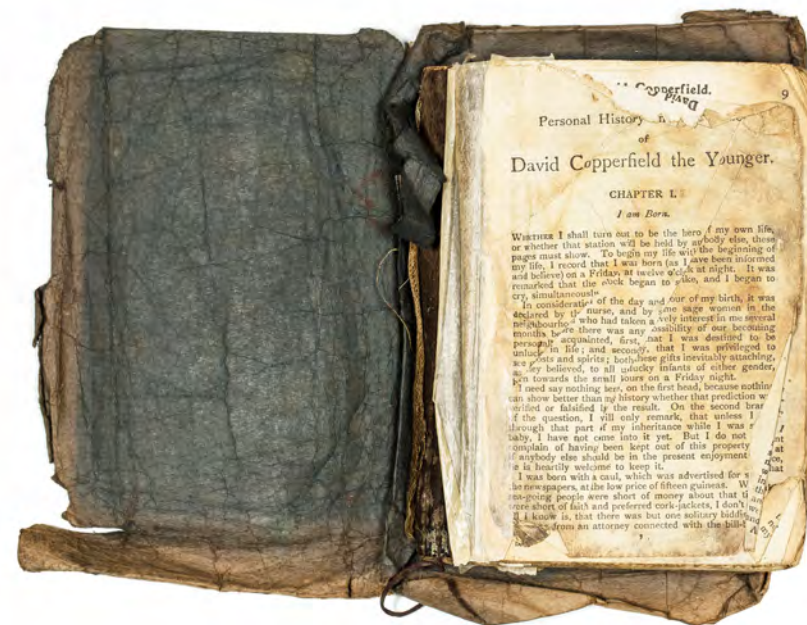 Copperfield.
David
9
Personal History
of
David Copperfield the Younger.
CHAPTER I.
I am Born.
WHETHER I shall turn out to be the hero of my own life,
or whether that station will be held by anybody else, these
pages must show. To begin my life with the beginning of
my life, I record that I was born (as I have been informed
and believe) on a Friday, at twelve o'clock at night. It was
remarked that the clock began to strike, and I began to
cry, simultaneously
In consideration of the day and hour of my birth, it was
declared by the nurse, and by some sage women in the
neighbourhood who had taken a lively interest in me several
months before there was any possibility of our becoming
personally acquainted, first, that I was destined to be
unlucky in life; and secondly, that I was privileged to
see ghosts and spirits; both these gifts inevitably attaching,
as they believed, to all unlucky infants of either gender,
born towards the small hours on a Friday night.
I need say nothing here, on the first head, because nothing
can show better than my history whether that prediction
verified or falsified by the result. On the second
of the question, I will only remark, that unless I
through that part of my inheritance while I was
baby, I have not come into it yet. But I do not
complain of having been kept out of this property
if anybody else should be in the present enjoyment
he is heartily welcome to keep it.
I was born with a caul, which was advertised for
the newspapers, at the low price of fifteen guineas.
sea-going people were short of money about that
were short of faith and preferred cork-jackets, I don't
I know is, that there was but one solitary
from an attorney connected with the